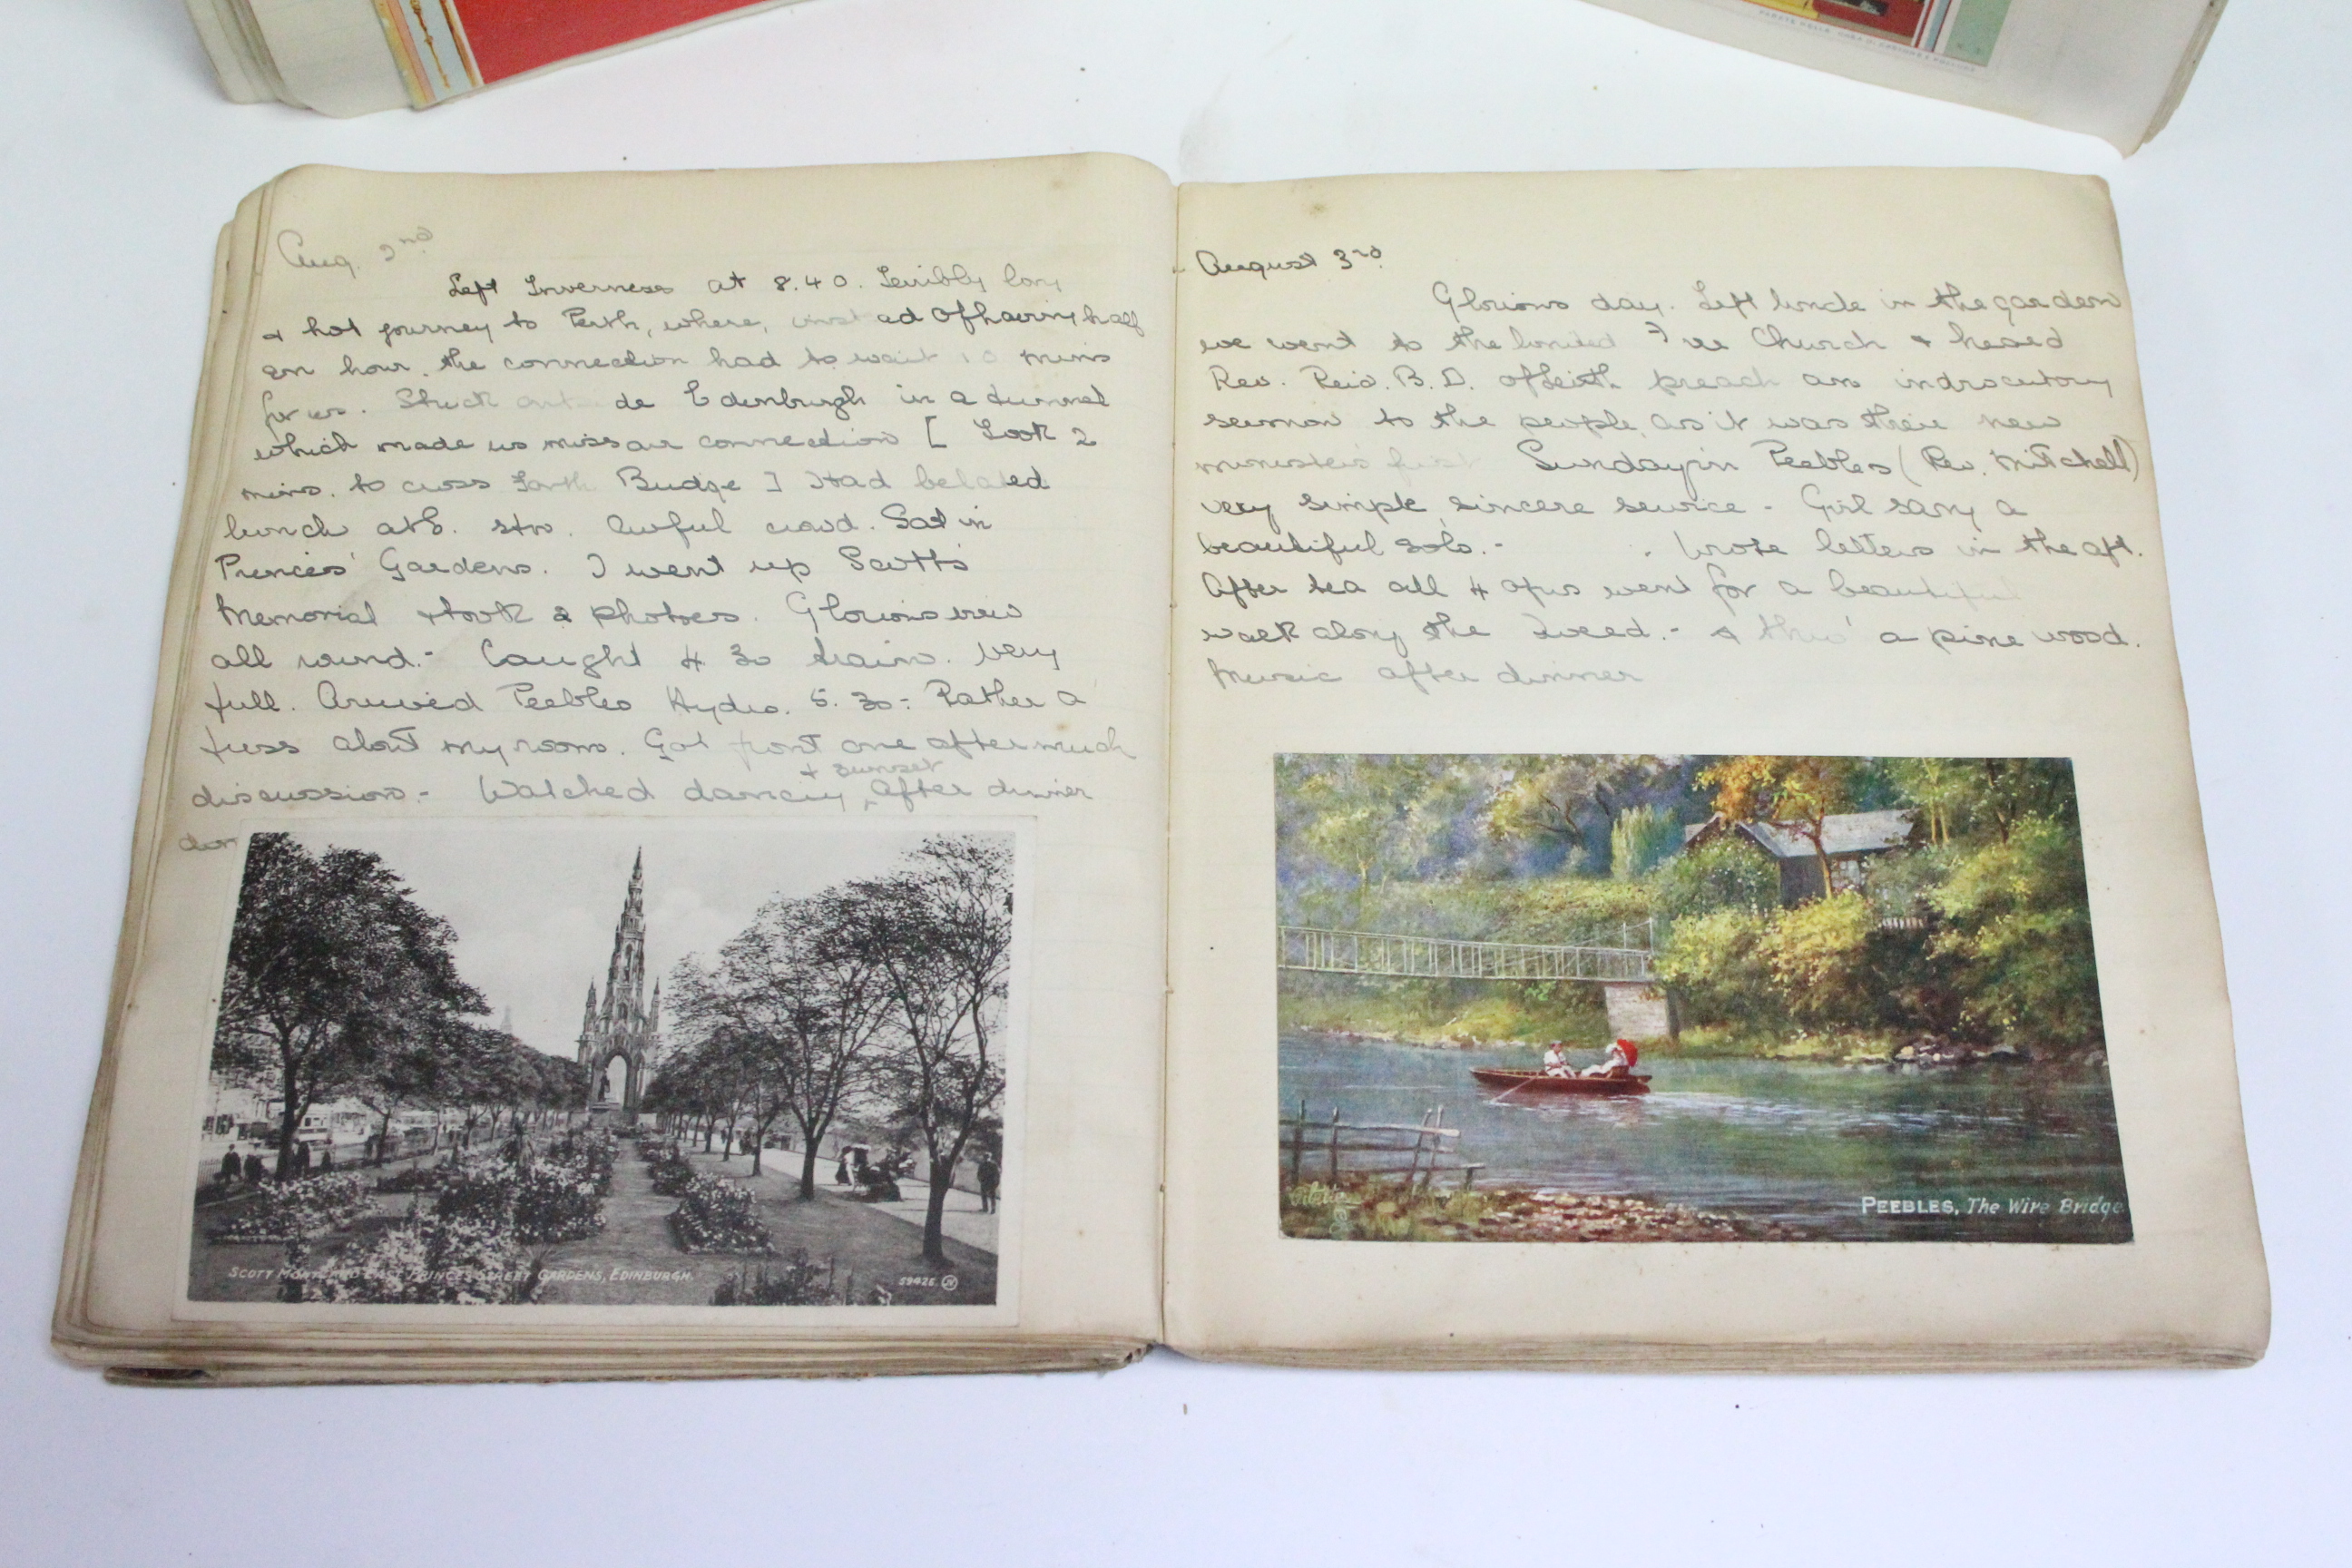 Aug. 2nd
Left Inverness at 8.40. Terribly long
& hot journey to Perth, where, instead of having half
an hour, the connection had to wait 10 mins
for us. Stuck outside Edinburgh in a tunnel
which made us miss our connection [ Took 2
mins. to cross Forth Bridge ] Had belated
lunch at stn. Awful crowd. Sat in
Princes' Gardens. I went up Scott's
Memorial & took 2 photoes. Glorious view
all round.- Caught 4 30 train. Very
full. Arrived Peebles Hydro. 5.30:- Rather a
fuss about my room. Got front one after much
+ sunset
discussion.- Watched dancing after dinner
SCOTT MONT. AND EAST PRINCES STREET GARDENS, EDINBURGH.
59426. JV
August 3rd
Glorious day. Left Uncle in the garden
we went to the United Free Church & heard
Rev. Reid. B.D. of Leith preach an indrocutory
sermon to the people, as it was their new
minister's first Sunday in Peebles (Rev. Mitchell)
very simple, sincere service - Girl sang a
beautiful solo.- Wrote letters in the aft.
After tea all 4 of us went for a beautiful
walk along the Tweed.- & thro' a pine wood.
Music after dinner
PEEBLES, The Wire Bridge